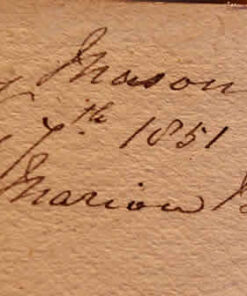 Mason
7th 1851
Marion